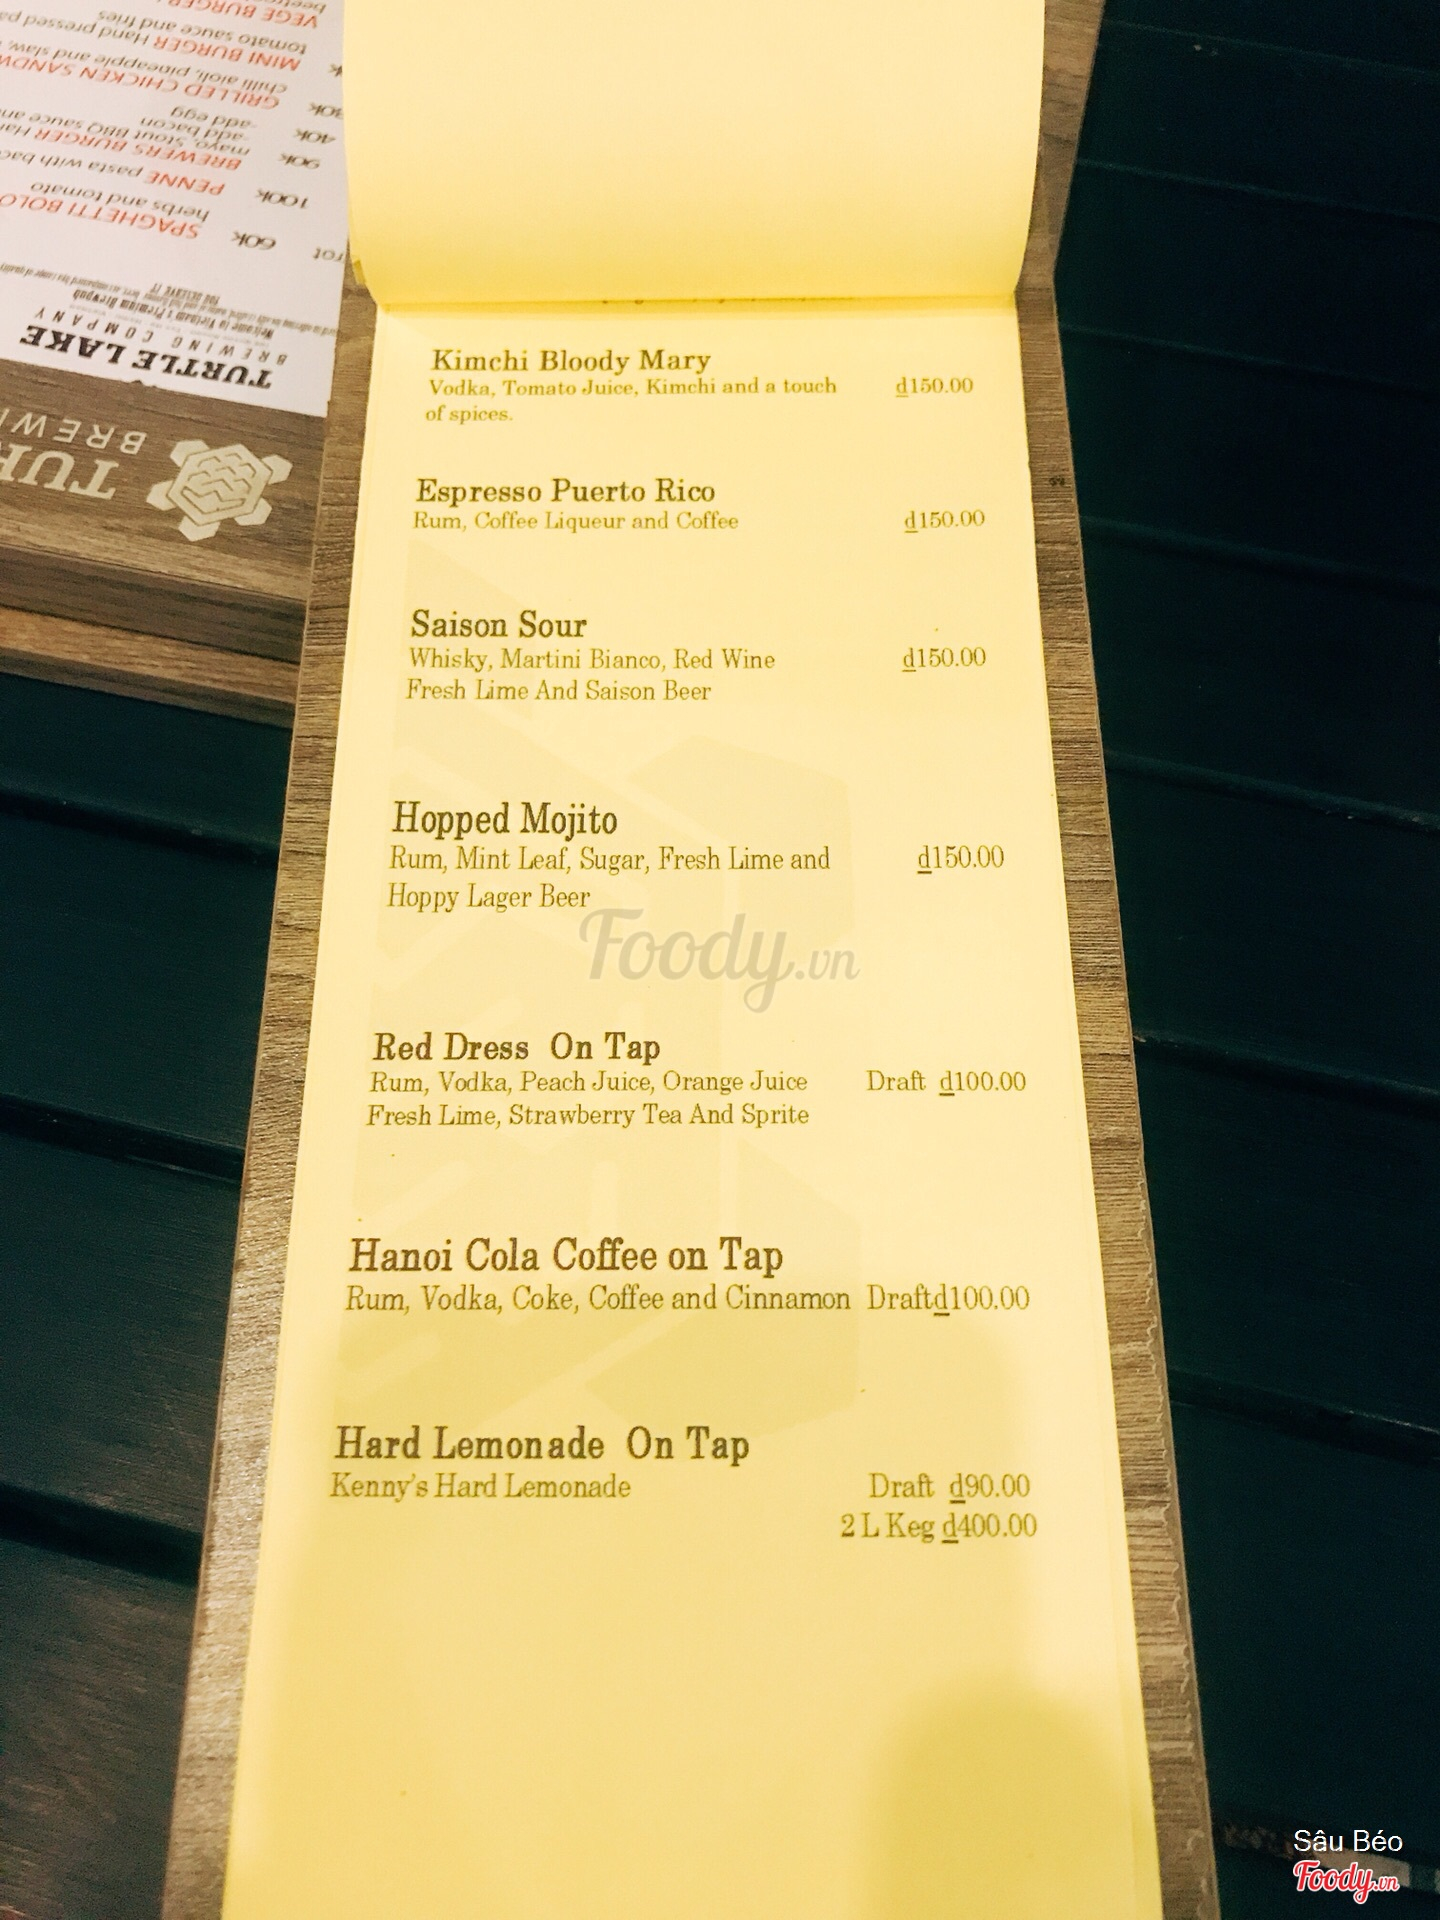 Kimchi Bloody Mary
Vodka, Tomato Juice, Kimchi and a touch đ150.00
of spices.
Espresso Puerto Rico
Rum, Coffee Liqueur and Coffee đ150.00
Saison Sour
Whisky, Martini Bianco, Red Wine đ150.00
Fresh Lime And Saison Beer
Hopped Mojito
Rum, Mint Leaf, Sugar, Fresh Lime and đ150.00
Hoppy Lager Beer
Foody.vn
Red Dress On Tap
Rum, Vodka, Peach Juice, Orange Juice Draft đ100.00
Fresh Lime, Strawberry Tea And Sprite
Hanoi Cola Coffee on Tap
Rum, Vodka, Coke, Coffee and Cinnamon Draftđ100.00
Hard Lemonade On Tap
Kenny's Hard Lemonade Draft đ90.00
2 L Keg đ400.00
TURTLE LAKE
BREWING COMPANY
Welcome to Vietnam's Premium Brewpub
YOU DESERVE IT
60k SPAGHETTI BOLO
herbs and tomato
100k PENNE pasta with bac
90k BREWERS BURGER Han
mayo, Stout BBQ sauce an
40k -add bacon
-add egg
GRILLED CHICKEN SANDW
chilli aioli, pineapple and slaw
MINI BURGER Hand pressed pa
tomato sauce and fries
VEGE BURGER
Sâu Béo
Foody.vn